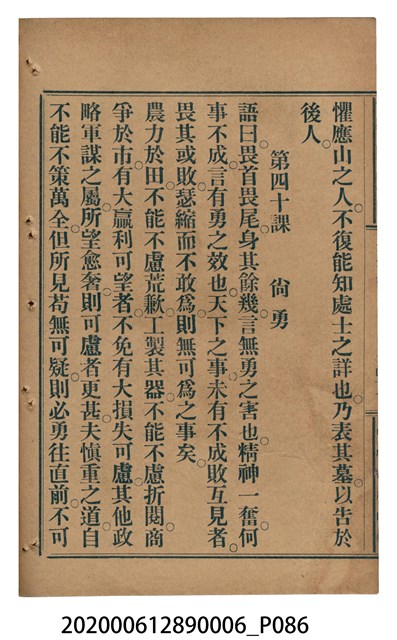 懼應山之人。不復能知處士之詳也。乃表其墓。以告於
後人。
第四十課　尙勇
語曰。畏首畏尾。身其餘幾。言無勇之害也。精神一奮。何
事不成。言有勇之效也。天下之事。未有不成敗互見者。
畏其或敗。瑟縮而不敢爲。則無可爲之事矣。
農力於田。不能不慮荒歉。工製其器。不能不慮折閱。商
爭於市。有大贏利可望者。不免有大損失可慮。其他政
略軍謀之屬。所望愈奢。則可慮者更甚。夫愼重之道。自
不能不策萬全。但所見苟無可疑。則必勇往直前。不可
202000612890006_P086